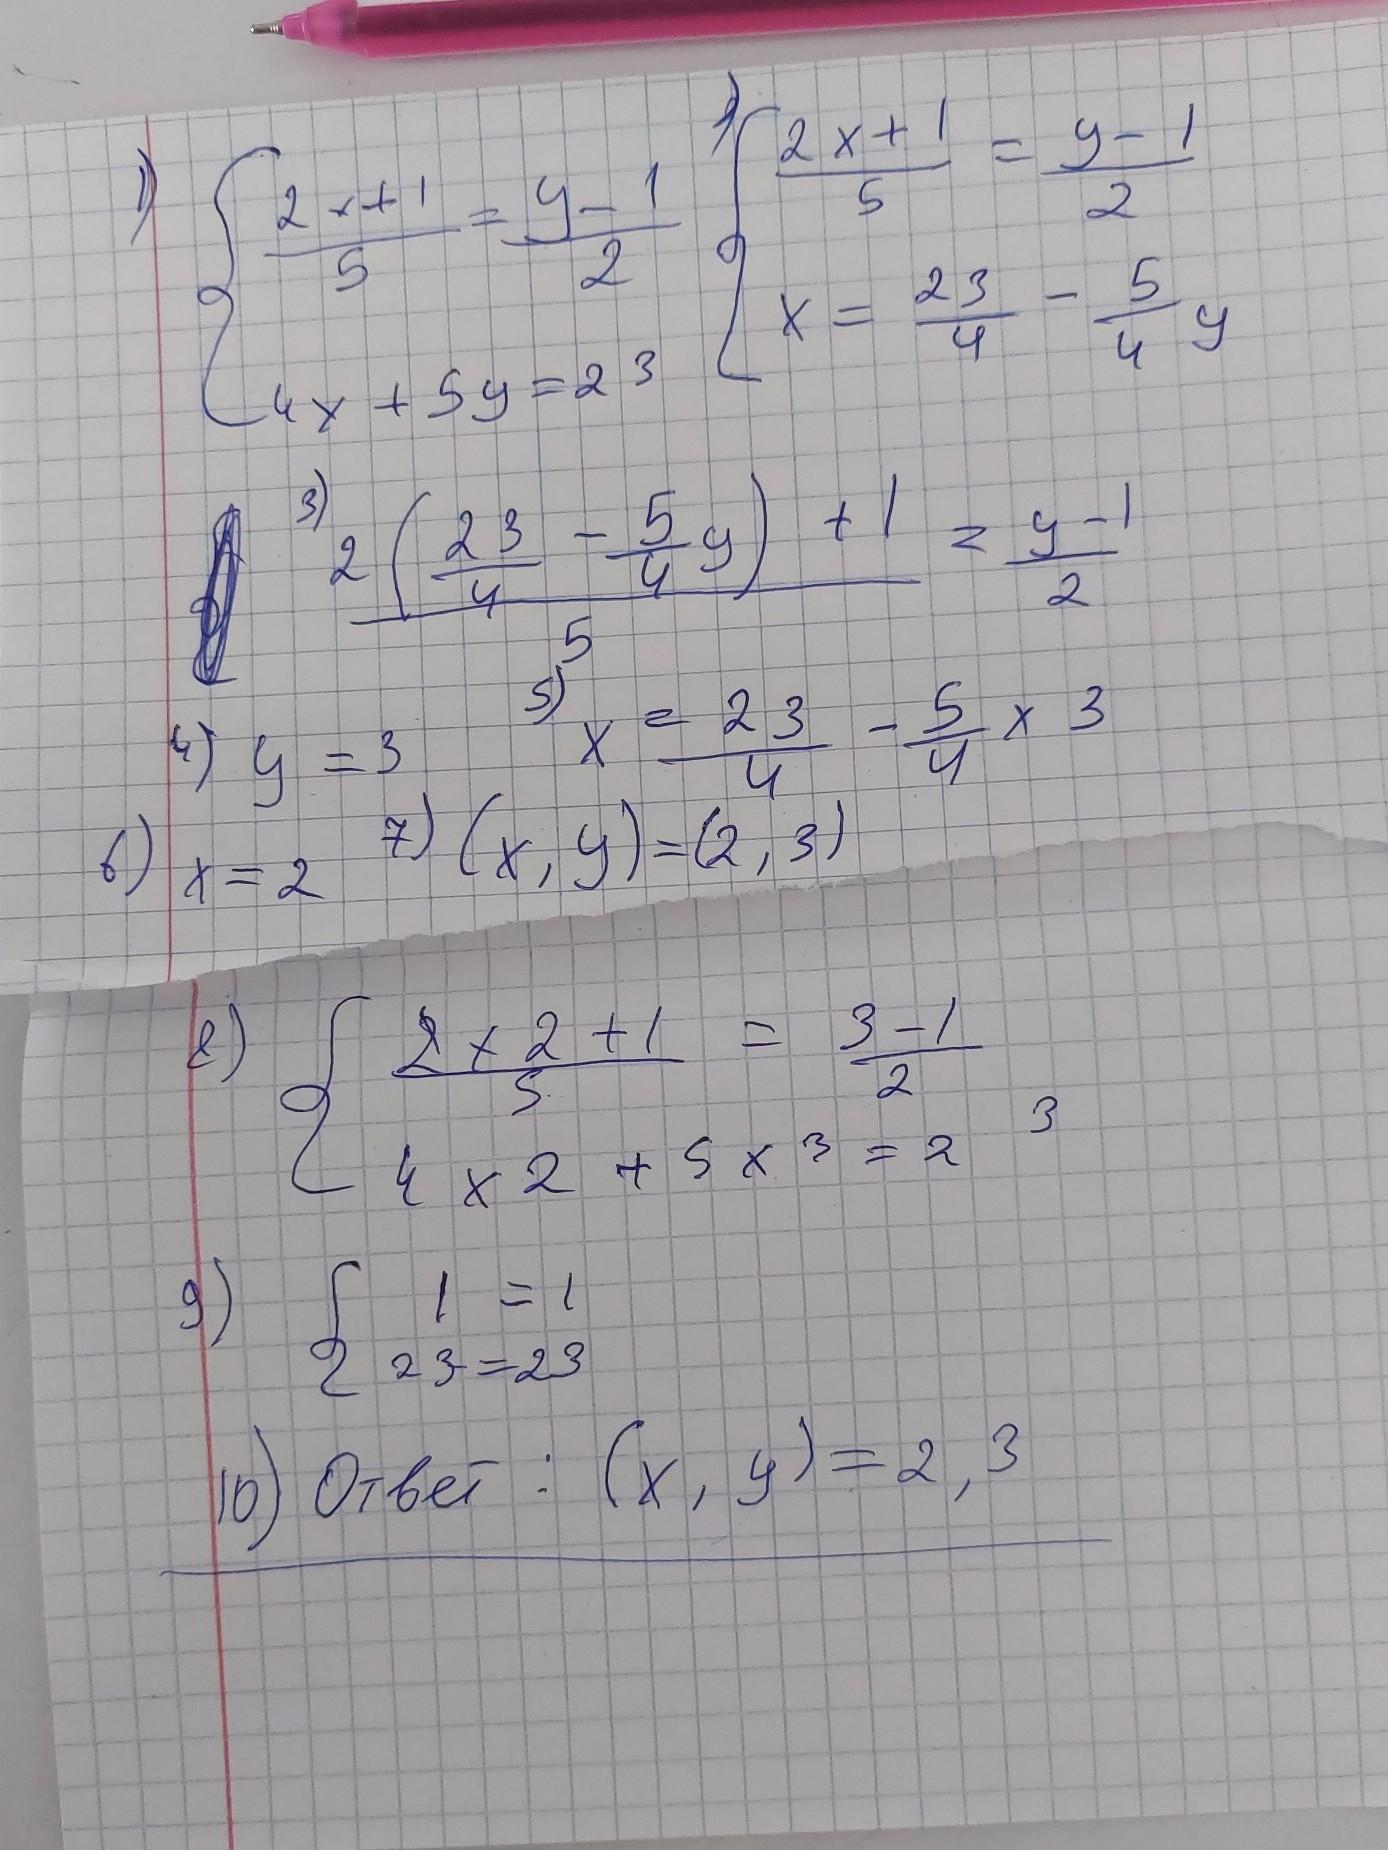 1) { (2x+1)/5 = (y-1)/2
4x + 5y = 23
1) { (2x+1)/5 = (y-1)/2
x = 23/4 - 5/4 y
3) (2(23/4 - 5/4 y) + 1)/5 = (y-1)/2
4) y = 3
5) x = 23/4 - 5/4 x 3
6) x = 2
7) (x, y) = (2, 3)
8) { (2 x 2 + 1)/5 = (3-1)/2
4 x 2 + 5 x 3 = 23
9) { 1 = 1
23 = 23
10) Ответ : (x, y) = 2, 3